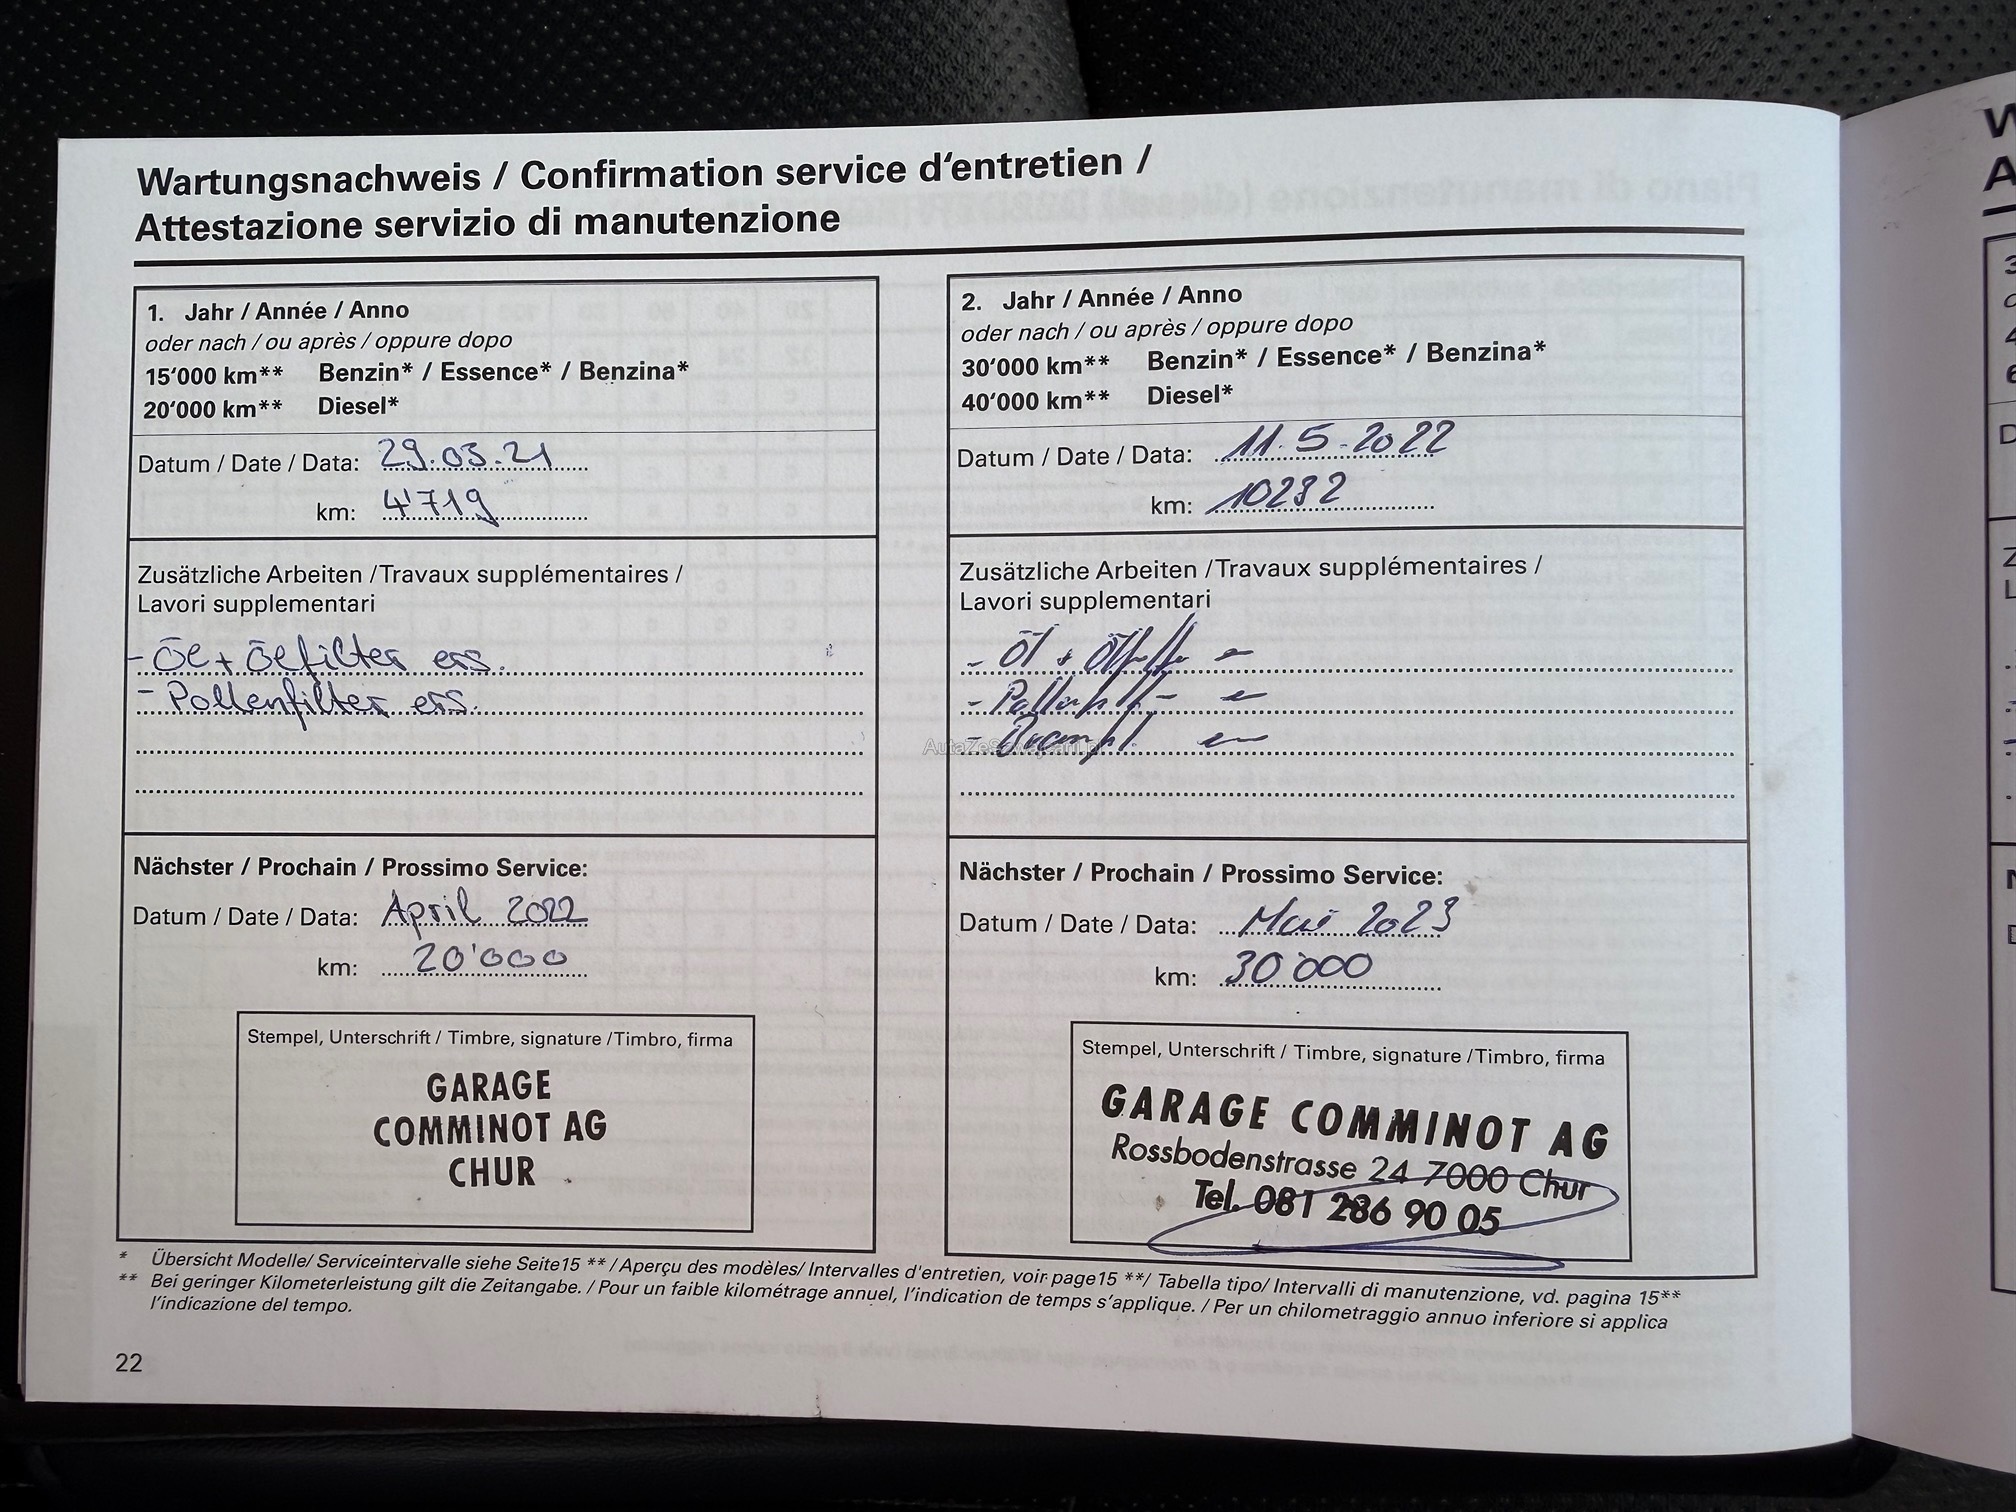 Wartungsnachweis / Confirmation service d‘entretien /
Attestazione servizio di manutenzione
1. Jahr / Année / Anno
oder nach / ou après / oppure dopo
15‘000 km** Benzin* / Essence* / Benzina*
20‘000 km** Diesel*
Datum / Date / Data: 29.03.21
km: 4'719
Zusätzliche Arbeiten /Travaux supplémentaires /
Lavori supplementari
- Öl + Ölfilter ers.
- Pollenfilter ers.
Nächster / Prochain / Prossimo Service:
Datum / Date / Data: April 2022
km: 20'000
Stempel, Unterschrift / Timbre, signature /Timbro, firma
GARAGE
COMMINOT AG
CHUR
2. Jahr / Année / Anno
oder nach / ou après / oppure dopo
30‘000 km** Benzin* / Essence* / Benzina*
40‘000 km** Diesel*
Datum / Date / Data: 11.5.2022
km: 10232
Zusätzliche Arbeiten /Travaux supplémentaires /
Lavori supplementari
- Öl +
-
-
AutaZeSzwajcarii.pl
Nächster / Prochain / Prossimo Service:
Datum / Date / Data: Mai 2023
km: 30'000
Stempel, Unterschrift / Timbre, signature /Timbro, firma
GARAGE COMMINOT AG
Rossbodenstrasse 24 7000 Chur
Tel. 081 286 90 05
* Übersicht Modelle/ Serviceintervalle siehe Seite15 ** /Aperçu des modèles/ Intervalles d'entretien, voir page15 **/ Tabella tipo/ Intervalli di manutenzione, vd. pagina 15**
** Bei geringer Kilometerleistung gilt die Zeitangabe. / Pour un faible kilométrage annuel, l’indication de temps s’applique. / Per un chilometraggio annuo inferiore si applica
l’indicazione del tempo.
22